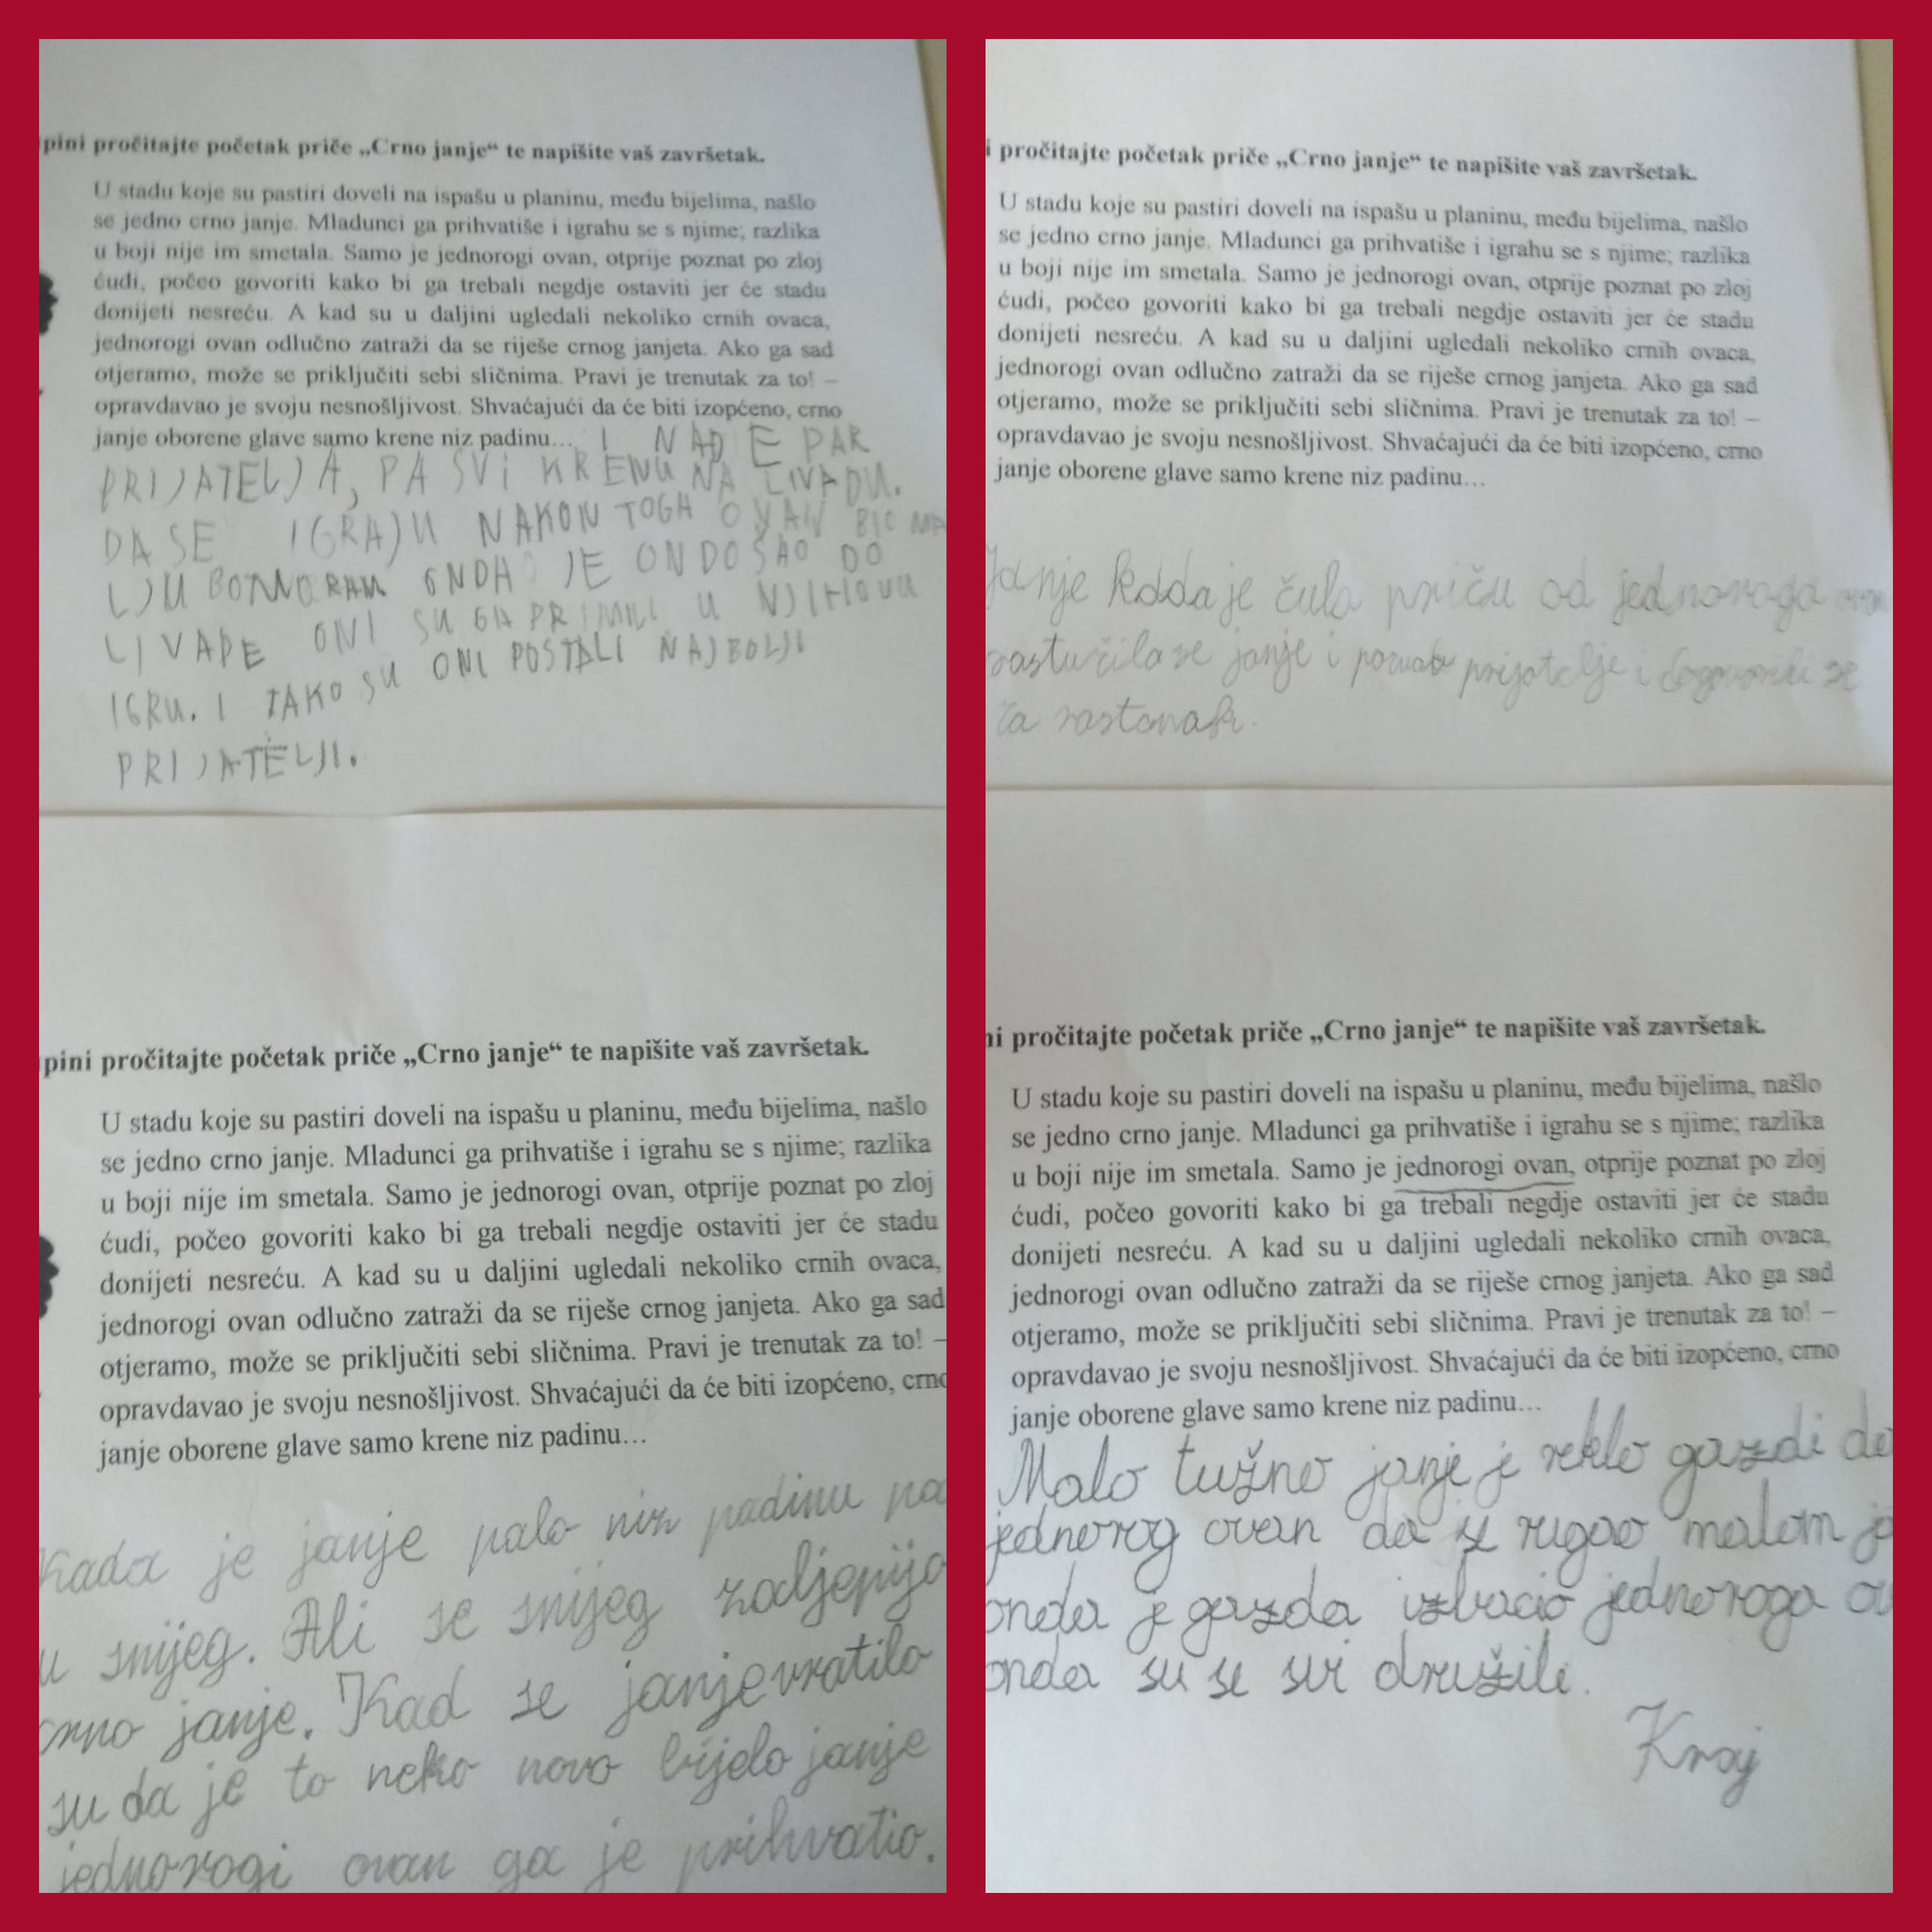 pini pročitajte početak priče „Crno janje“ te napišite vaš završetak.
U stadu koje su pastiri doveli na ispašu u planinu, među bijelima, našlo
se jedno crno janje. Mladunci ga prihvatiše i igrahu se s njime; razlika
u boji nije im smetala. Samo je jednorogi ovan, otprije poznat po zloj
ćudi, počeo govoriti kako bi ga trebali negdje ostaviti jer će stadu
donijeti nesreću. A kad su u daljini ugledali nekoliko crnih ovaca,
jednorogi ovan odlučno zatraži da se riješe crnog janjeta. Ako ga sad
otjeramo, može se priključiti sebi sličnima. Pravi je trenutak za to! –
opravdavao je svoju nesnošljivost. Shvaćajući da će biti izopćeno, crno
janje oborene glave samo krene niz padinu... I NAĐE PAR
PRIJATELJA, PA SVI KRENU NA LIVADU.
DA SE IGRAJU NAKON TOGA OVAN BIO
LJUBOMORAN ONDA JE ON DOŠAO DO
LIVADE ONI SU GA PRIMILI U NJIHOVU
IGRU. I TAKO SU ONI POSTALI NAJBOLJI
PRIJATELJI.
i pročitajte početak priče „Crno janje“ te napišite vaš završetak.
U stadu koje su pastiri doveli na ispašu u planinu, među bijelima, našlo
se jedno crno janje. Mladunci ga prihvatiše i igrahu se s njime; razlika
u boji nije im smetala. Samo je jednorogi ovan, otprije poznat po zloj
ćudi, počeo govoriti kako bi ga trebali negdje ostaviti jer će stadu
donijeti nesreću. A kad su u daljini ugledali nekoliko crnih ovaca,
jednorogi ovan odlučno zatraži da se riješe crnog janjeta. Ako ga sad
otjeramo, može se priključiti sebi sličnima. Pravi je trenutak za to! –
opravdavao je svoju nesnošljivost. Shvaćajući da će biti izopćeno, crno
janje oborene glave samo krene niz padinu...
Janje kada je čula priču od jednoroga
rastužila se janje i prijatelje i dogovorili se
za rastanak.
pini pročitajte početak priče „Crno janje“ te napišite vaš završetak.
U stadu koje su pastiri doveli na ispašu u planinu, među bijelima, našlo
se jedno crno janje. Mladunci ga prihvatiše i igrahu se s njime; razlika
u boji nije im smetala. Samo je jednorogi ovan, otprije poznat po zloj
ćudi, počeo govoriti kako bi ga trebali negdje ostaviti jer će stadu
donijeti nesreću. A kad su u daljini ugledali nekoliko crnih ovaca,
jednorogi ovan odlučno zatraži da se riješe crnog janjeta. Ako ga sad
otjeramo, može se priključiti sebi sličnima. Pravi je trenutak za to! –
opravdavao je svoju nesnošljivost. Shvaćajući da će biti izopćeno, crno
janje oborene glave samo krene niz padinu...
Kada je janje palo niz padinu pa
u snijeg. Ali se snijeg zaljepijo
crno janje. Kad se janje vratilo
su da je to neko novo bijelo janje
jednorogi ovan ga je prihvatio.
ni pročitajte početak priče „Crno janje“ te napišite vaš završetak.
U stadu koje su pastiri doveli na ispašu u planinu, među bijelima, našlo
se jedno crno janje. Mladunci ga prihvatiše i igrahu se s njime; razlika
u boji nije im smetala. Samo je jednorogi ovan, otprije poznat po zloj
ćudi, počeo govoriti kako bi ga trebali negdje ostaviti jer će stadu
donijeti nesreću. A kad su u daljini ugledali nekoliko crnih ovaca,
jednorogi ovan odlučno zatraži da se riješe crnog janjeta. Ako ga sad
otjeramo, može se priključiti sebi sličnima. Pravi je trenutak za to! –
opravdavao je svoju nesnošljivost. Shvaćajući da će biti izopćeno, crno
janje oborene glave samo krene niz padinu...
Malo tužno janje je reklo gazdi da
jednorog ovan da se rugao malom
onda je gazda izbacio jednoroga
onda su se svi družili.
Kraj